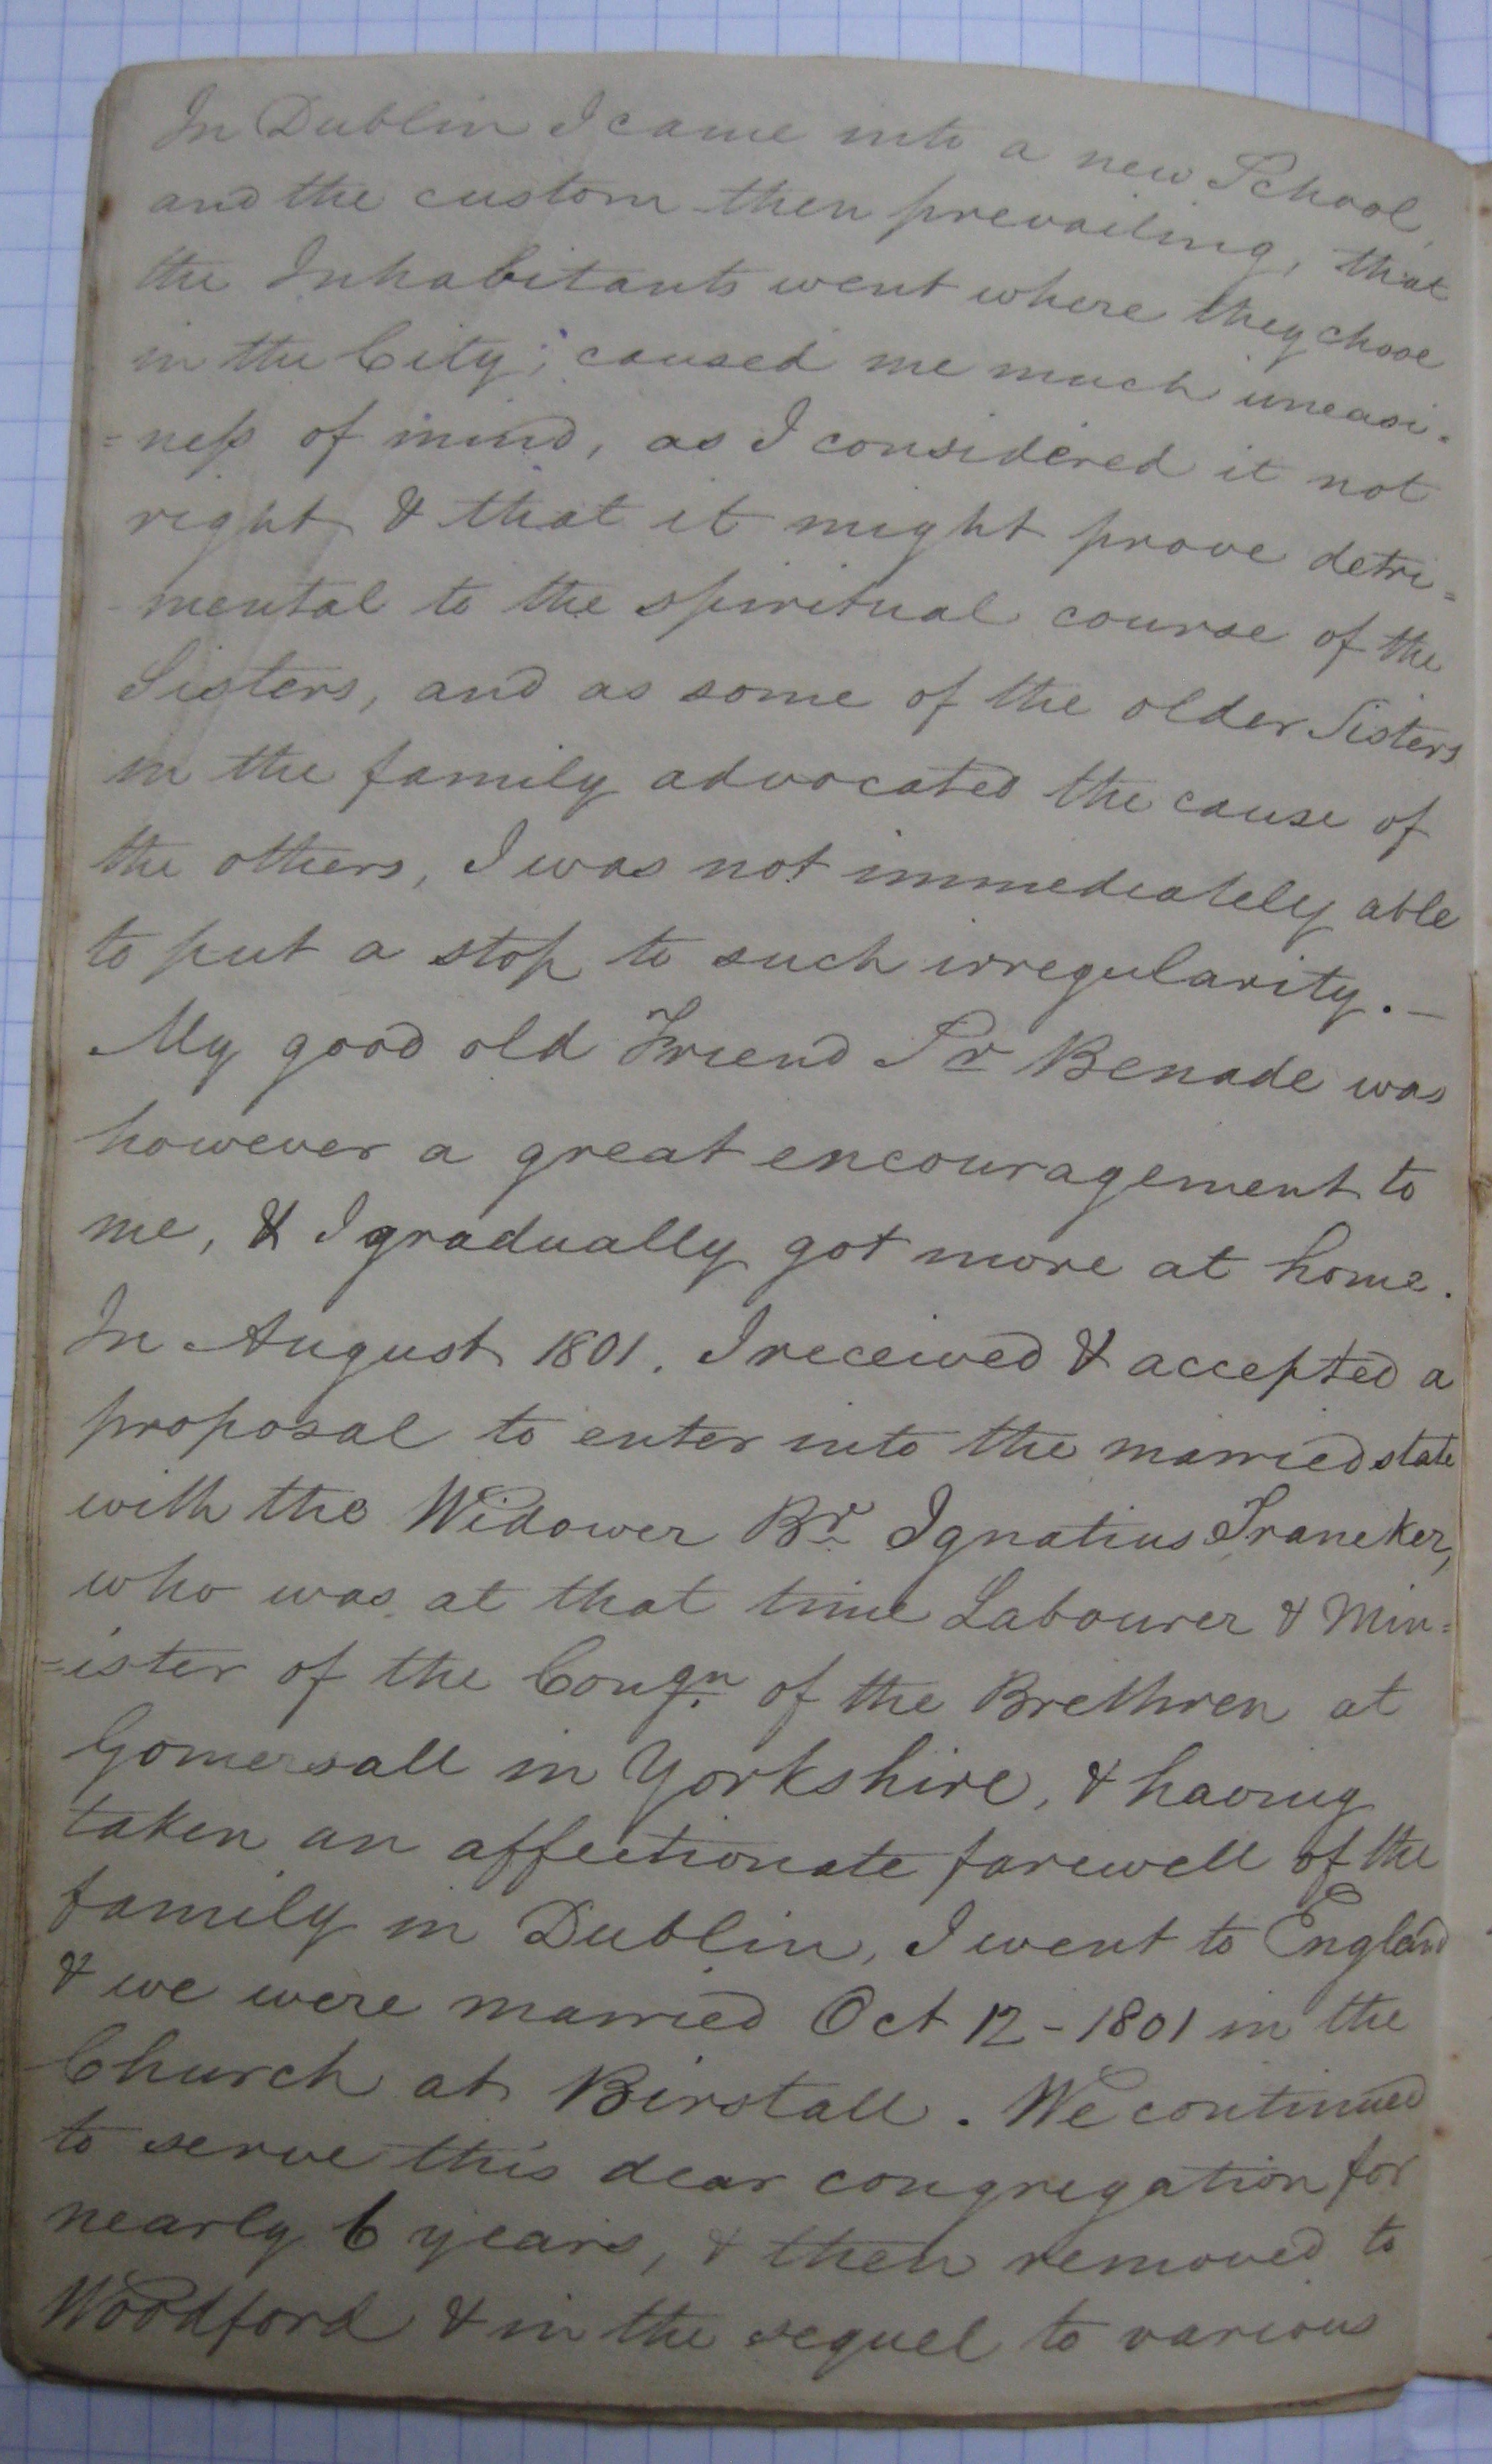 In Dublin I came into a new School,
and the custom then prevailing, that
the Inhabitants went where they chose
in the City; caused me much uneasi-
=ness of mind, as I considered it not
right & that it might prove detri=
mental to the spiritual course of the
Sisters, and as some of the older Sisters
in the family advocated the cause of
the others, I was not immediately able
to put a stop to such irregularity. —
My good old Friend Sr Benade was
however a great encouragement to
me, & I gradually got more at home.
In August 1801. I received & accepted a
proposal to enter into the married state
with the Widower Br Ignatius Traneker,
who was at that time Labourer & Min=
=ister of the Congn of the Brethren at
Gomersall in Yorkshire, & having
taken an affectionate farewell of the
family in Dublin, I went to England
& we were married Oct 12 - 1801 in the
Church at Birstall. We continued
to serve this dear congregation for
nearly 6 years, & then removed to
Woodford & in the sequel to various